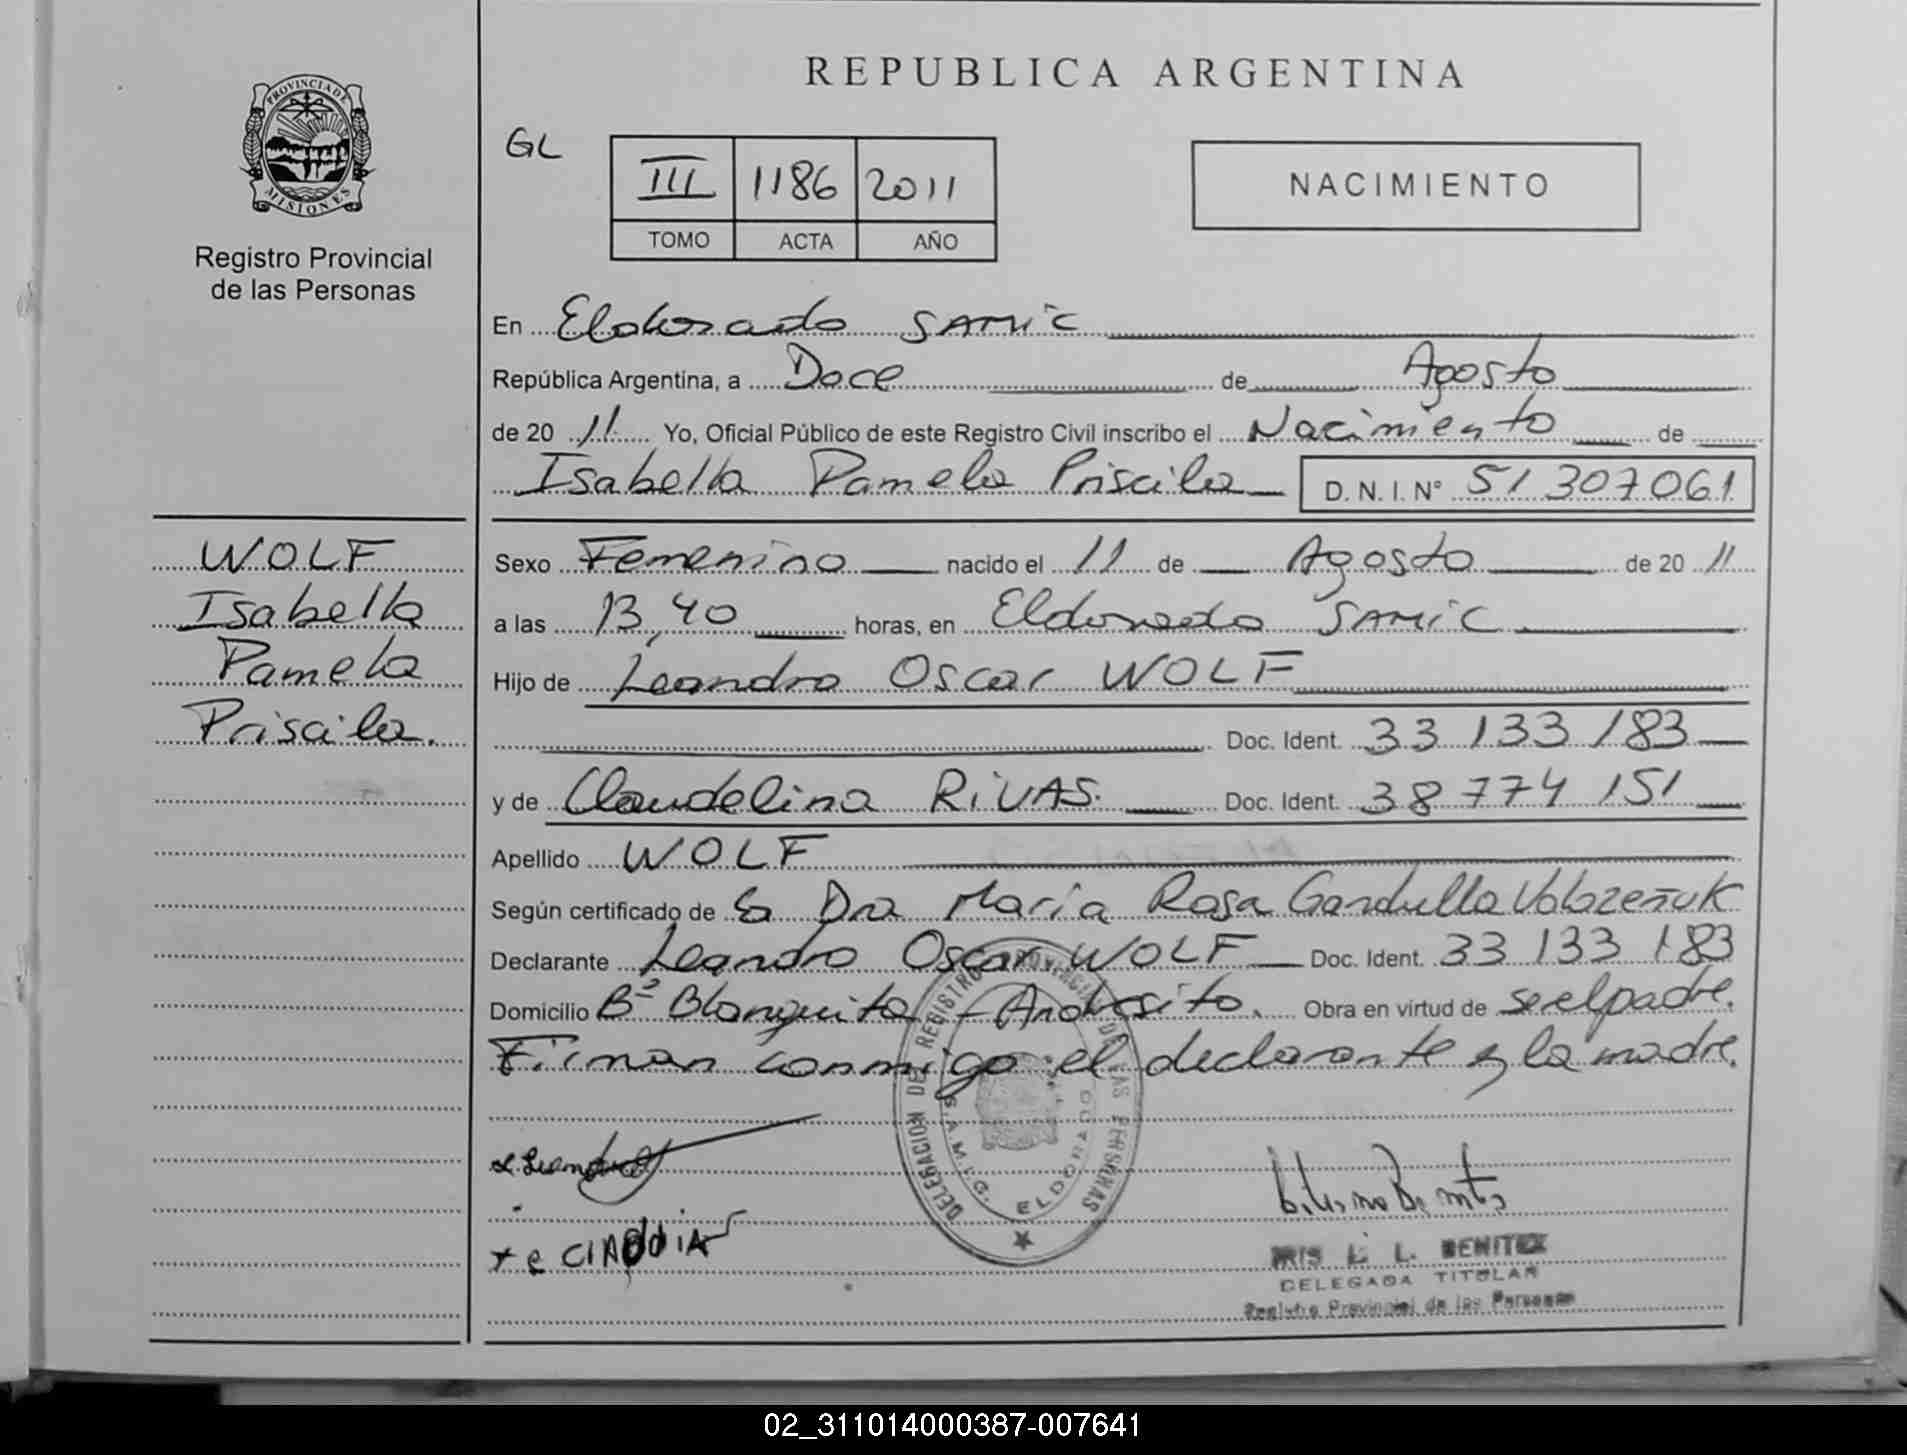 REPUBLICA ARGENTINA
PROVINCIA DE
MISIONES
Registro Provincial
de las Personas
GL
III 1186 2011
TOMO ACTA AÑO
NACIMIENTO
En Eldorado SAMIC
República Argentina, a Doce de Agosto
de 20 11 Yo, Oficial Público de este Registro Civil inscribo el Nacimiento de
Isabella Pamela Priscila D.N.I. Nº 51 307 061
WOLF
Isabella
Pamela
Priscila.
Sexo Femenino nacido el 11 de Agosto de 20 11
a las 13,40 horas, en Eldorado SAMIC
Hijo de Leandro Oscar WOLF
Doc. Ident. 33 133 183
y de Claudelina RIVAS. Doc. Ident. 38 774 151
Apellido WOLF
Según certificado de la Dra María Rosa Gandulla Volozeñuk
Declarante Leandro Oscar WOLF Doc. Ident. 33 133 183
Domicilio Bº Blanquita - Andresito. Obra en virtud de se el padre.
Firman conmigo el declarante y la madre.
DELEGACION DEL REGISTRO PROVINCIAL DE LAS PERSONAS
S.A.M.I.C. ELDORADO
IRIS E. L. BENITEZ
DELEGADA TITULAR
Registro Provincial de las Personas
02_311014000387-007641